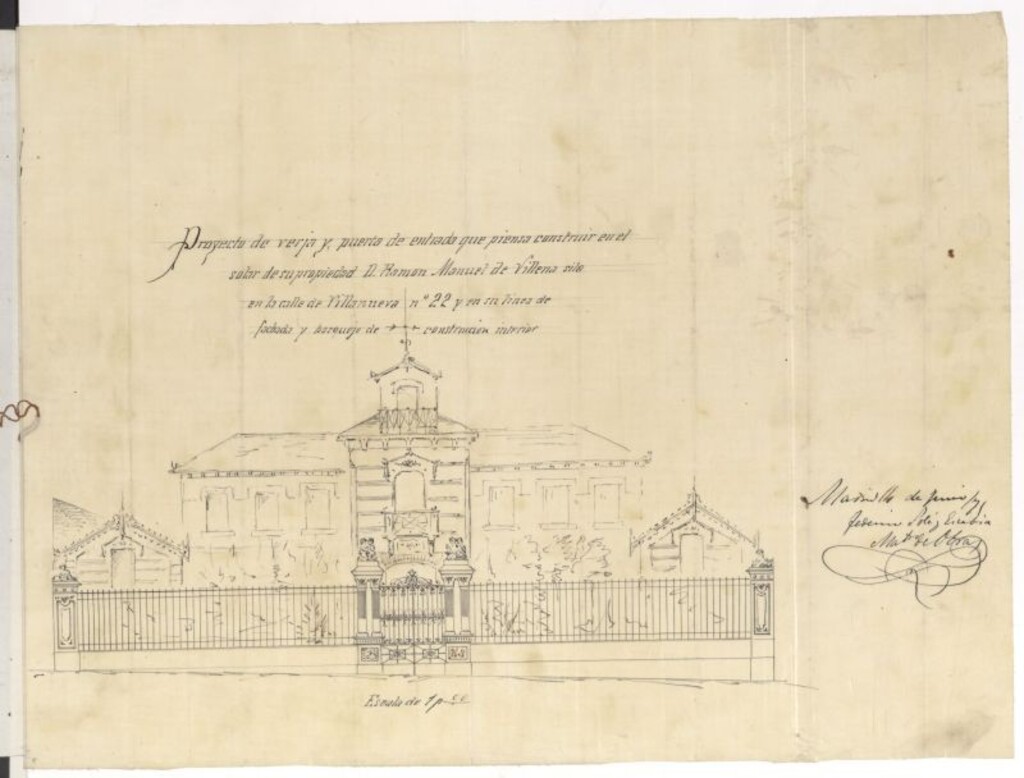 Proyecto de verja y puerta de entrada que piensa construir en el
solar de su propiedad D. Ramon Manuel de Villena sito
en la calle de Villanueva nº 22 y en su linea de
fachada y bosquejo de construccion interior
Escala de 1 p
Madrid de Junio
Federico
Mtº de Obras